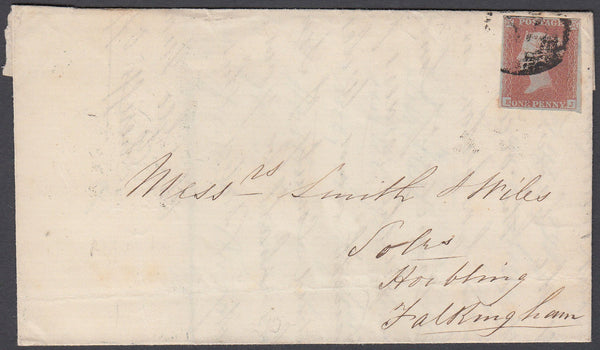 POSTAGE
ONE PENNY
Messrs Smith & Wiles
Solrs
Horbling
Falkingham